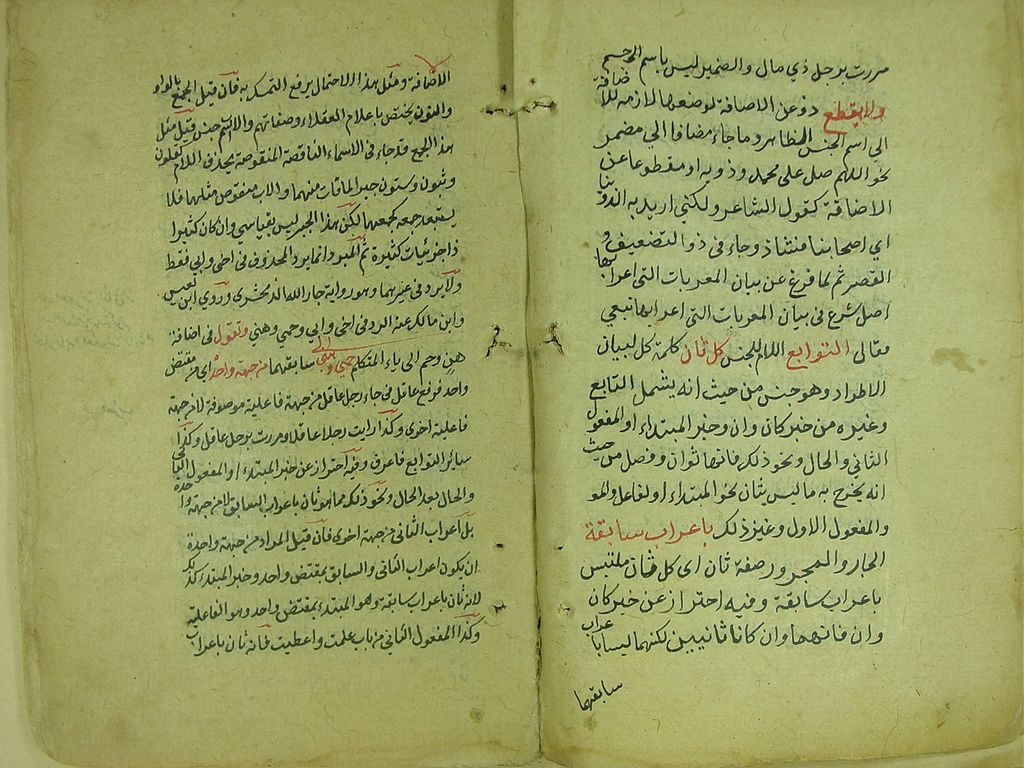 مررت برجل ذي مال والضمير ليس باسم الجنس
ولا يقطع ذو عن الاضافة لوضعها لازمة للاضافة
الى اسم الجنس الظاهر وما جاء مضافا الى مضمر
نحو اللهم صل على محمد وذويه او مقطوعا عن
الاضافة كقول الشاعر ولكني اريد به الذوينا
اي اصحابنا فشاذ وجاء في ذو التضعيف و
القصر ثم لما فرغ عن بيان المعربات التي اعرابها
اصل شرع في بيان المعربات التي اعرابها تبعي
فقال التوابع اللام للجنس كل ثان كلمة كل لبيان
الاطراد وهو جنس من حيث انه يشمل التابع
وغيره من خبر كان وان وخبر المبتداء او المفعول
الثاني والحال ونحو ذلك فانها ثوان وفصل من حيث
انه يخرج به ما ليس بثان نحو المبتداء او الفاعل
والمفعول الاول وغير ذلك باعراب سابقة
الجار والمجرور صفة ثان اى كل ثان ملتبس
باعراب سابقة وفيه احتراز عن خبر كان
وان فانهما وان كانا ثانيين لكنهما ليسا باعراب
سابقهما
الاضافة ومثل هذا الاحتمال يرفع التمسك به فان قيل الجمع بالواو
والنون يختص باعلام العقلاء وصفاتهم والاب اسم جنس قيل مثل
هذا الجمع قد جاء في الاسماء الناقصة المنقوصة بحذف اللام كقلون
وثبون وسنون جبرا لما فات منها والاب منقوص مثلها فلا
يستبعد جمعه كجمعها لكن هذا الجبر ليس بقياسي وان كان كثيرا
ذا جزئيات كثيرة ثم المبرد انما يرد المحذوف في اخي وابي فقط
ولا يرد في غيرهما وهو رواية جار الله الزمخشري وروى ابن يعيش
وابن مالك عنه الرد في اخي وابي وحمي وهني وتقول في اضافة
هن وحم الى ياء المتكلم حمي وهني سابقهما من جهة واحدة اي من مقتض
واحد فرفع عاقل في جاء رجل عاقل من جهة فاعلية موصوفة لا من جهة
فاعلية اخرى وكذا رايت رجلا عاقلا ومررت برجل عاقل وكذا
سائر التوابع فاعرف وفيه احتراز عن خبر المبتداء والمفعول الثاني
والحال بعد الحال ونحو ذلك مما هو ثان باعراب السابق لا من جهة واحدة
بل اعراب الثاني من جهة اخرى فان قيل المراد من جهة واحدة
ان يكون اعراب الثاني والسابق بمقتض واحد وخبر المبتداء كذلك
لانه ثان باعراب سابقة وهو المبتداء بمقتض واحد وهو الفاعلية
وكذا المفعول الثاني من باب علمت واعطيت فانه ثان باعراب